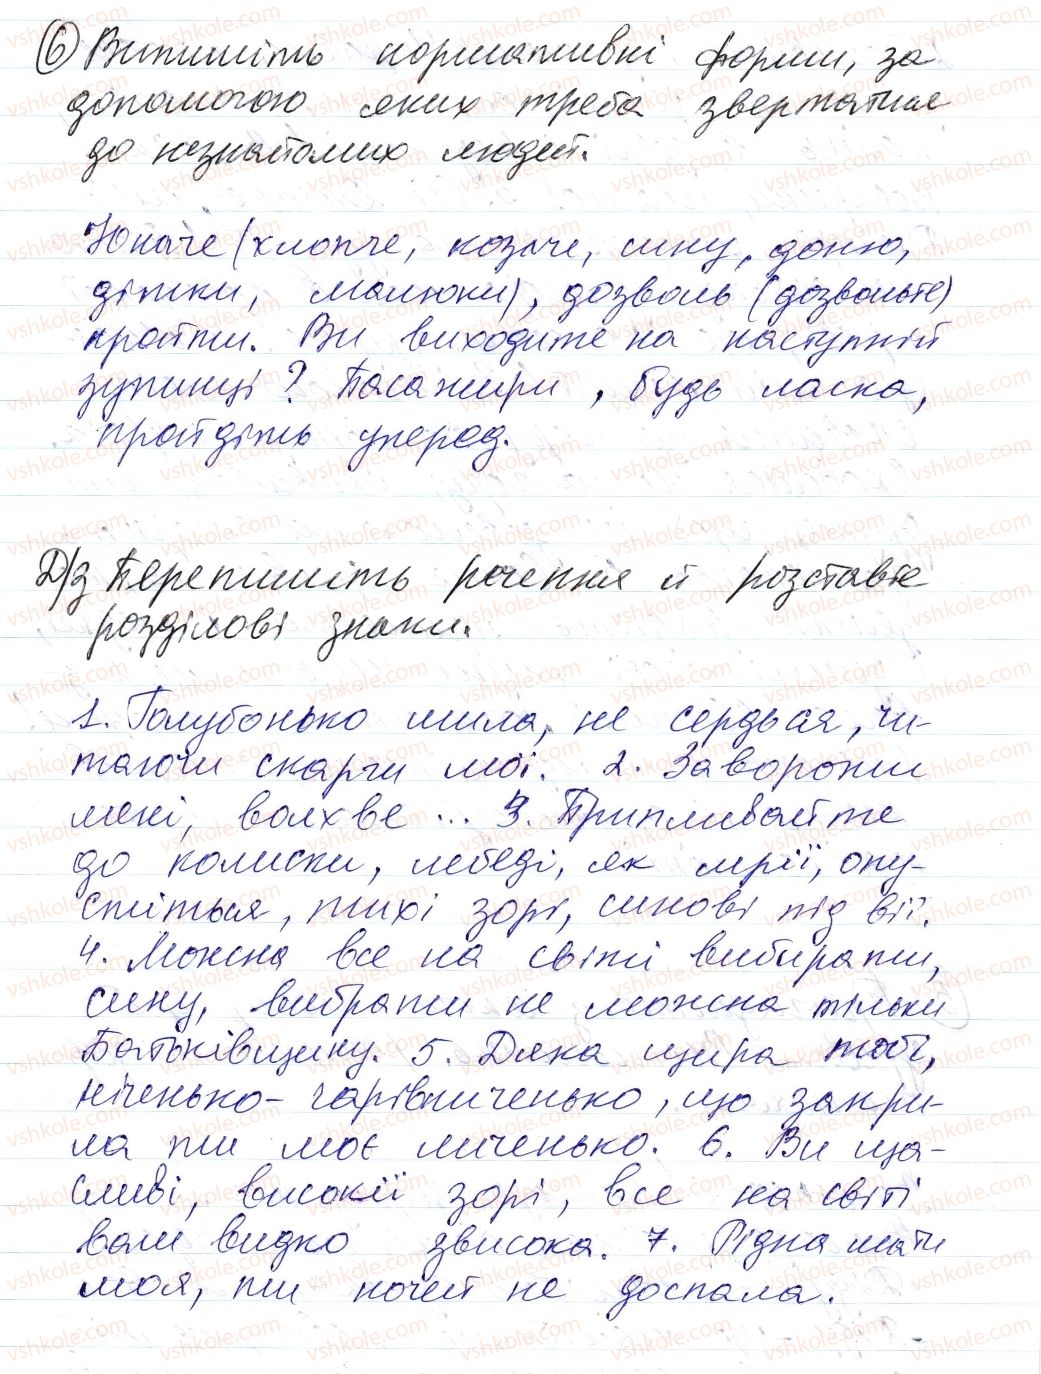 6 Випишіть нормативні форми, за
допомогою яких треба звертатися
до незнайомих людей.
Юначе (хлопче, козаче, сину, доню,
дітки, малюки), дозволь (дозвольте)
пройти. Ви виходите на наступній
зупинці? Пасажири, будь ласка,
пройдіть уперед.
Д/з Перепишіть речення й розставте
розділові знаки.
1. Голубонько мила, не сердься, чи-
таючи скарги мої. 2. Заворожи
мені, волхве ... 3. Припливайте
до колиски, лебеді, як мрії, опу-
стіться, тихі зорі, синові під вії.
4. Можна все на світі вибирати,
сину, вибрати не можна тільки
Батьківщину. 5. Дяка щира тобі,
ніченько-чарівниченько, що закри-
ла ти моє личенько. 6. Ви ща-
сливі, високії зорі, все на світі
вам видко звисока. 7. Рідна мати
моя, ти ночей не доспала.